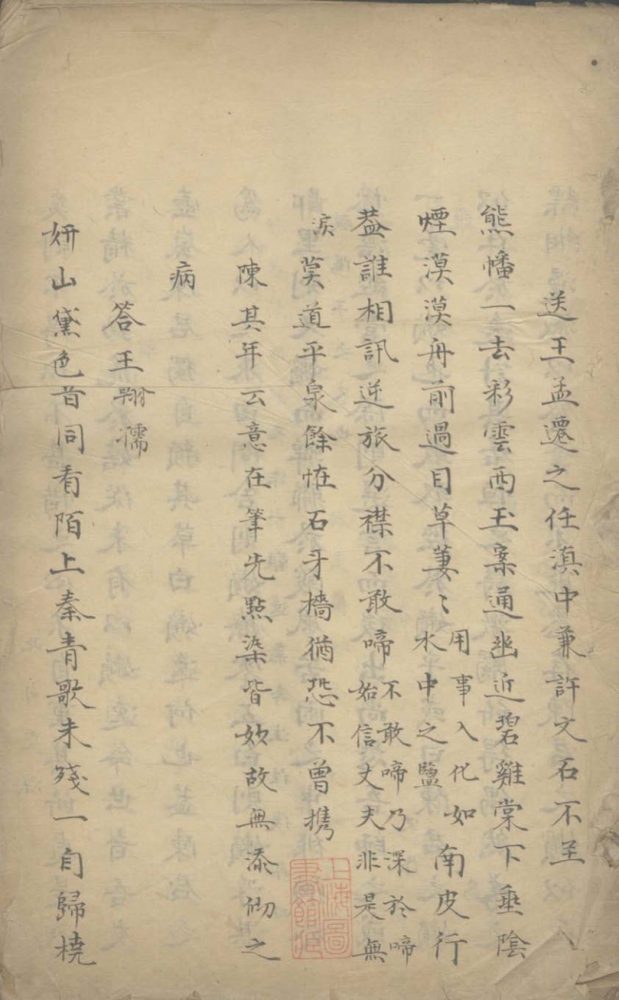 送王孟遷之任滇中兼許文石不至
熊幡一去彩雲西玉案通幽近碧雞棠下垂陰
煙漠漠舟前過目草萋〻用事入化如水中之鹽南皮行
葢誰相訊逆旅分襟不敢啼不敢啼乃深於啼始信丈夫非是無
淚莫道平泉餘恠石牙檣猶恐不曾携
陳其年云意在筆先點染皆妙故無添之
病
答王翰
妍山黛色昔同看陌上秦青歌未殘一自歸橈
上海圖
書館藏